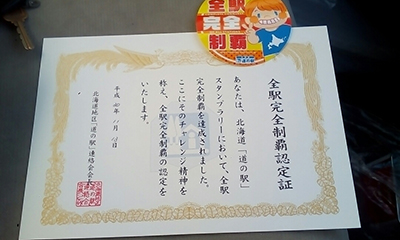 全駅
完全
制覇
全駅完全制覇認定証
あなたは、北海道「道の駅」
スタンプラリーにおいて、全駅
完全制覇を達成されました。
ここにそのチャレンジ精神を
称え、全駅完全制覇の認定を
いたします。
平成
11月
北海道地区「道の駅」連絡会会長